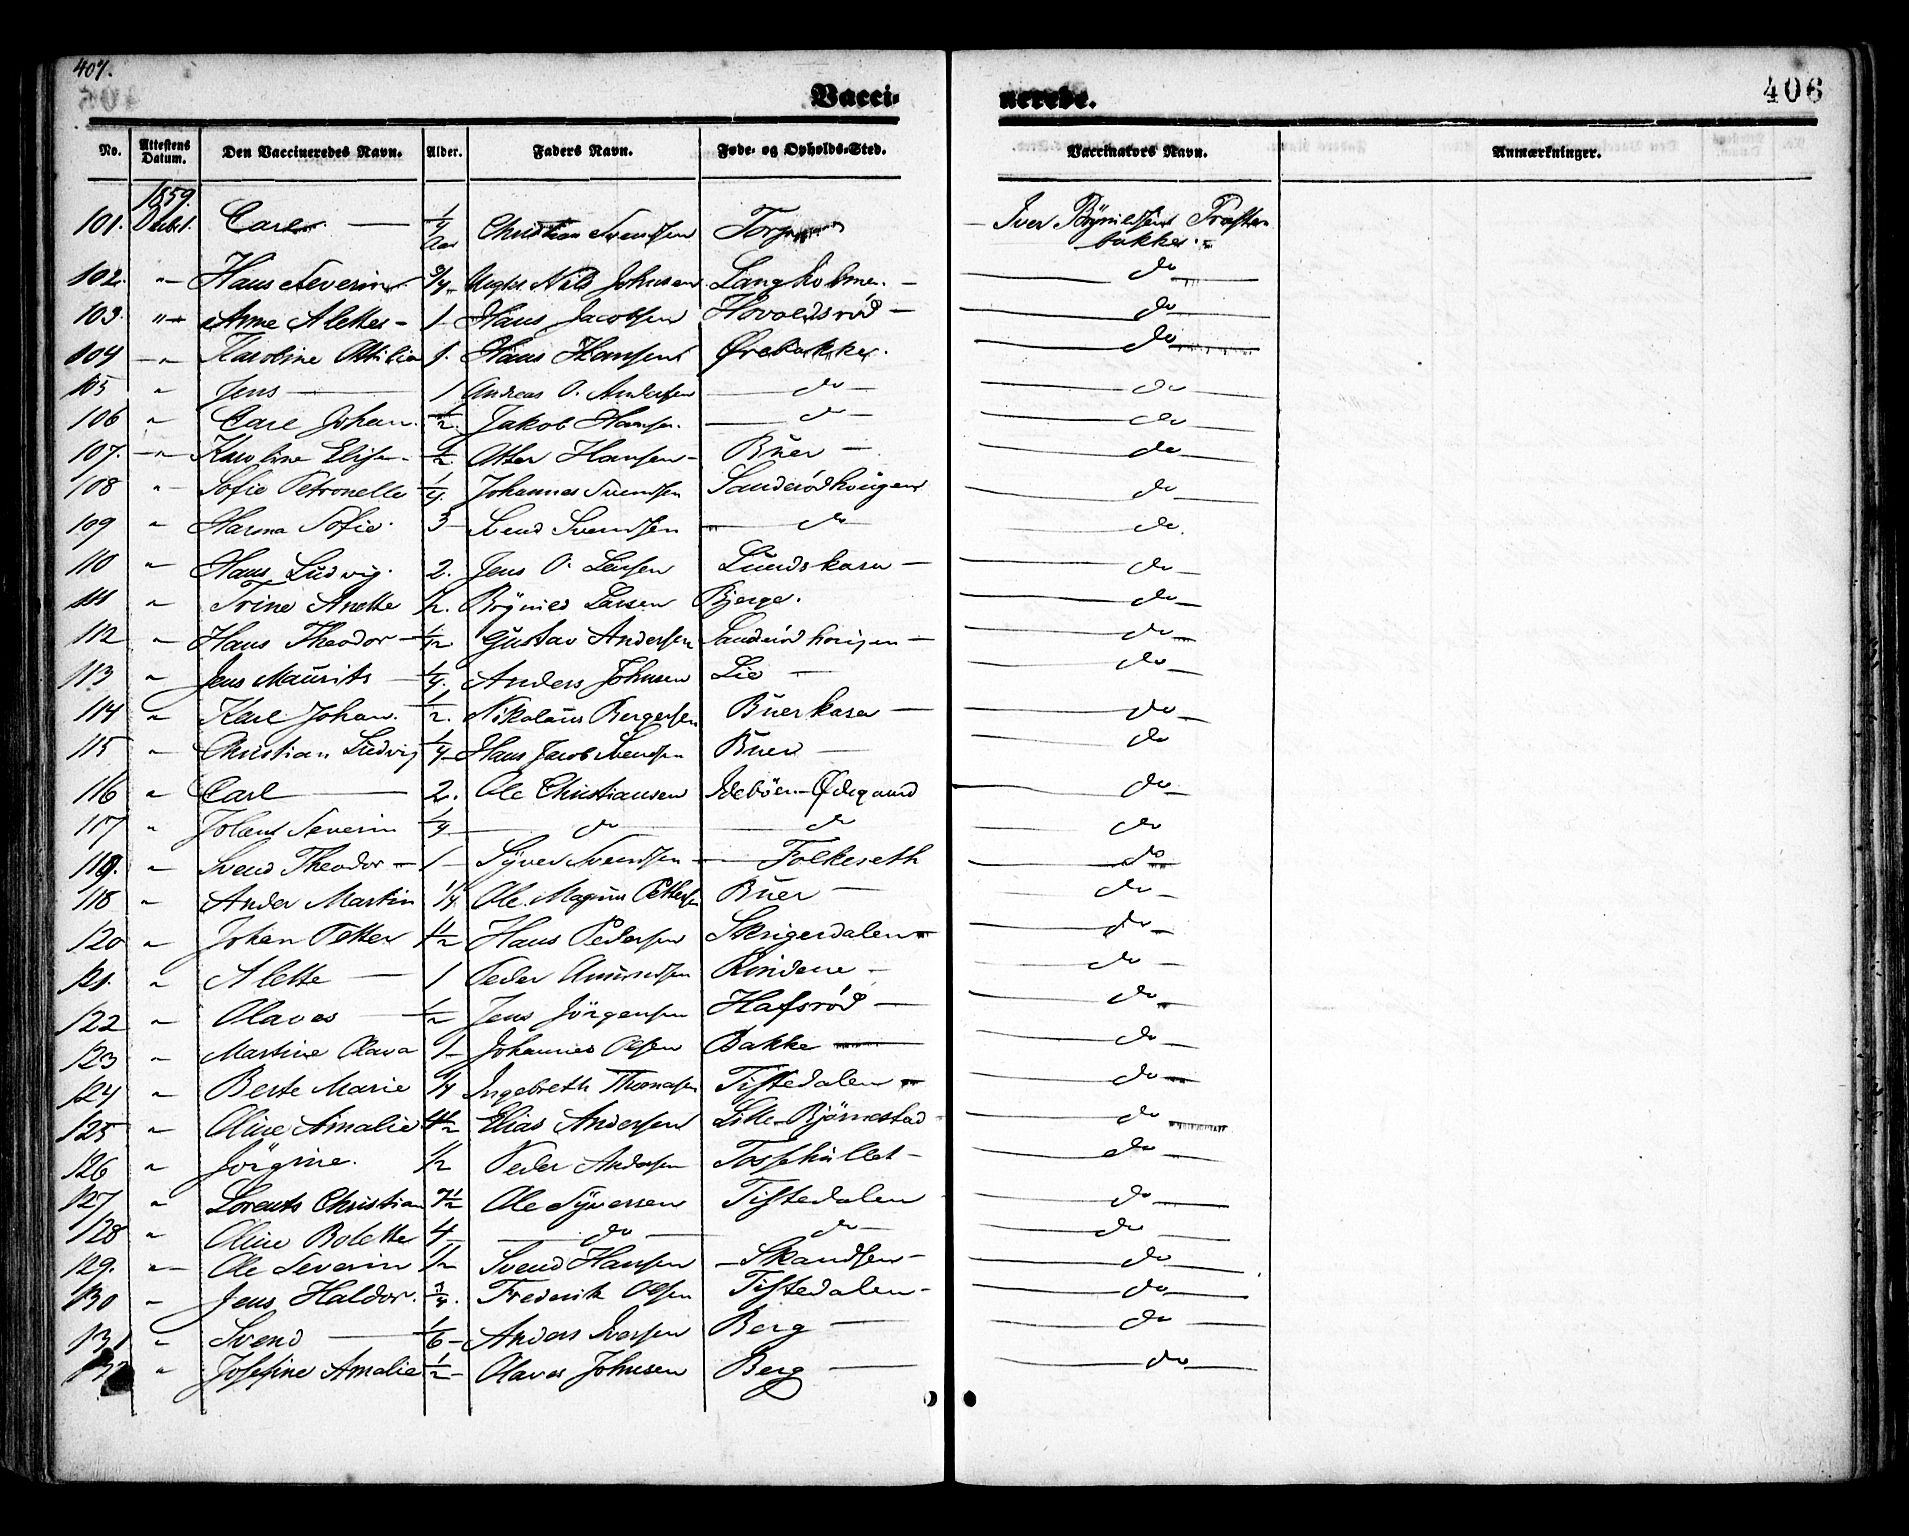 407.
406
Vacci-
nerede.
No. Attestens Datum. Den Vaccineredes Navn. Alder. Faders Navn. Føde- og Opholds-Sted. Vaccinators Navn. Anmærkninger.
1859
101. Carl — 1/4 Aar Christian Svendsen Torp — Iver
bakke.
102. " Hans Severin 3/4 Nils Johnsen Langholmen. — do
103. " Anne Alette - 1 - Hans Jacobsen Hovaldsröd — do
104 " Karoline Ottilia 1. Hans Hansen Ørebakke. do
105 " Jens — 1 Andreas O. Andersen — do — do
106 " Carl Johan. 1/2. Jakob Hansen. — do — do
107. " Karoline Elise - 1/2 Otter Hansen - Buer — do
108 " Sofie Petronelle 1/4. Johannes Svendsen do
109 " Sofie. 3 - Svend Svendsen do do.
110 " Hans Ludvig. 2. Jens O. Lundskasa — do
111 " Trine Anette 1/2. Brynild Larsen Bjerge. do
112 " Hans Theodor — 1/12 Gustav Andersen — do
113 " Jens Maurits — 1/4. Anders Johnsen Lie — do
114 " Karl Johan. 1/2. Nikolaus Bergersen Buerkasa — do
115 " Christian Ludvig 1/4 - Hans Jacob Svendsen Buer — do
116 " Carl — 2. Ole Christiansen Ideböen-Ødegaard do
117 " Severin 1/4 — do — do do
119. " Svend Theodor — 1 — Syver Svendsen — Folkeseth do
118 " Ander Martin 1/4 Ole Magnus Pettersen Buer — do
120 " Johan Petter 1 1/2 Hans Pedersen do
121. " Alette — 1 Peder Amundsen Rindene — do
122 " Olaves — 1/2 Jens Jörgensen Hafsröd — do
123 " Martine Olava 1 - Johannes Olsen Bakke — do
124 " Berte Marie 1/4 Ingebreth Thomasen Tistedalen do
125 " Oline Amalie Elias Andersen Lille-Björnestad do
126 " Jörgine. 1/2 Peder Andersen do
127 " Lorents Christian Ole Syversen Tistedalen do
128 " Oline Bolette 4 — do — do — do
129. " Ole Severin 1/2 Svend Hansen — Skandsen — do
130 " Jens Haldor. 3/4. Frederik Olsen Tistedalen — do
131 " Svend — 1/6 - Anders Iversen Berg — do
" Josefine Amalie 1/2 - Olaves Johnsen Berg — do